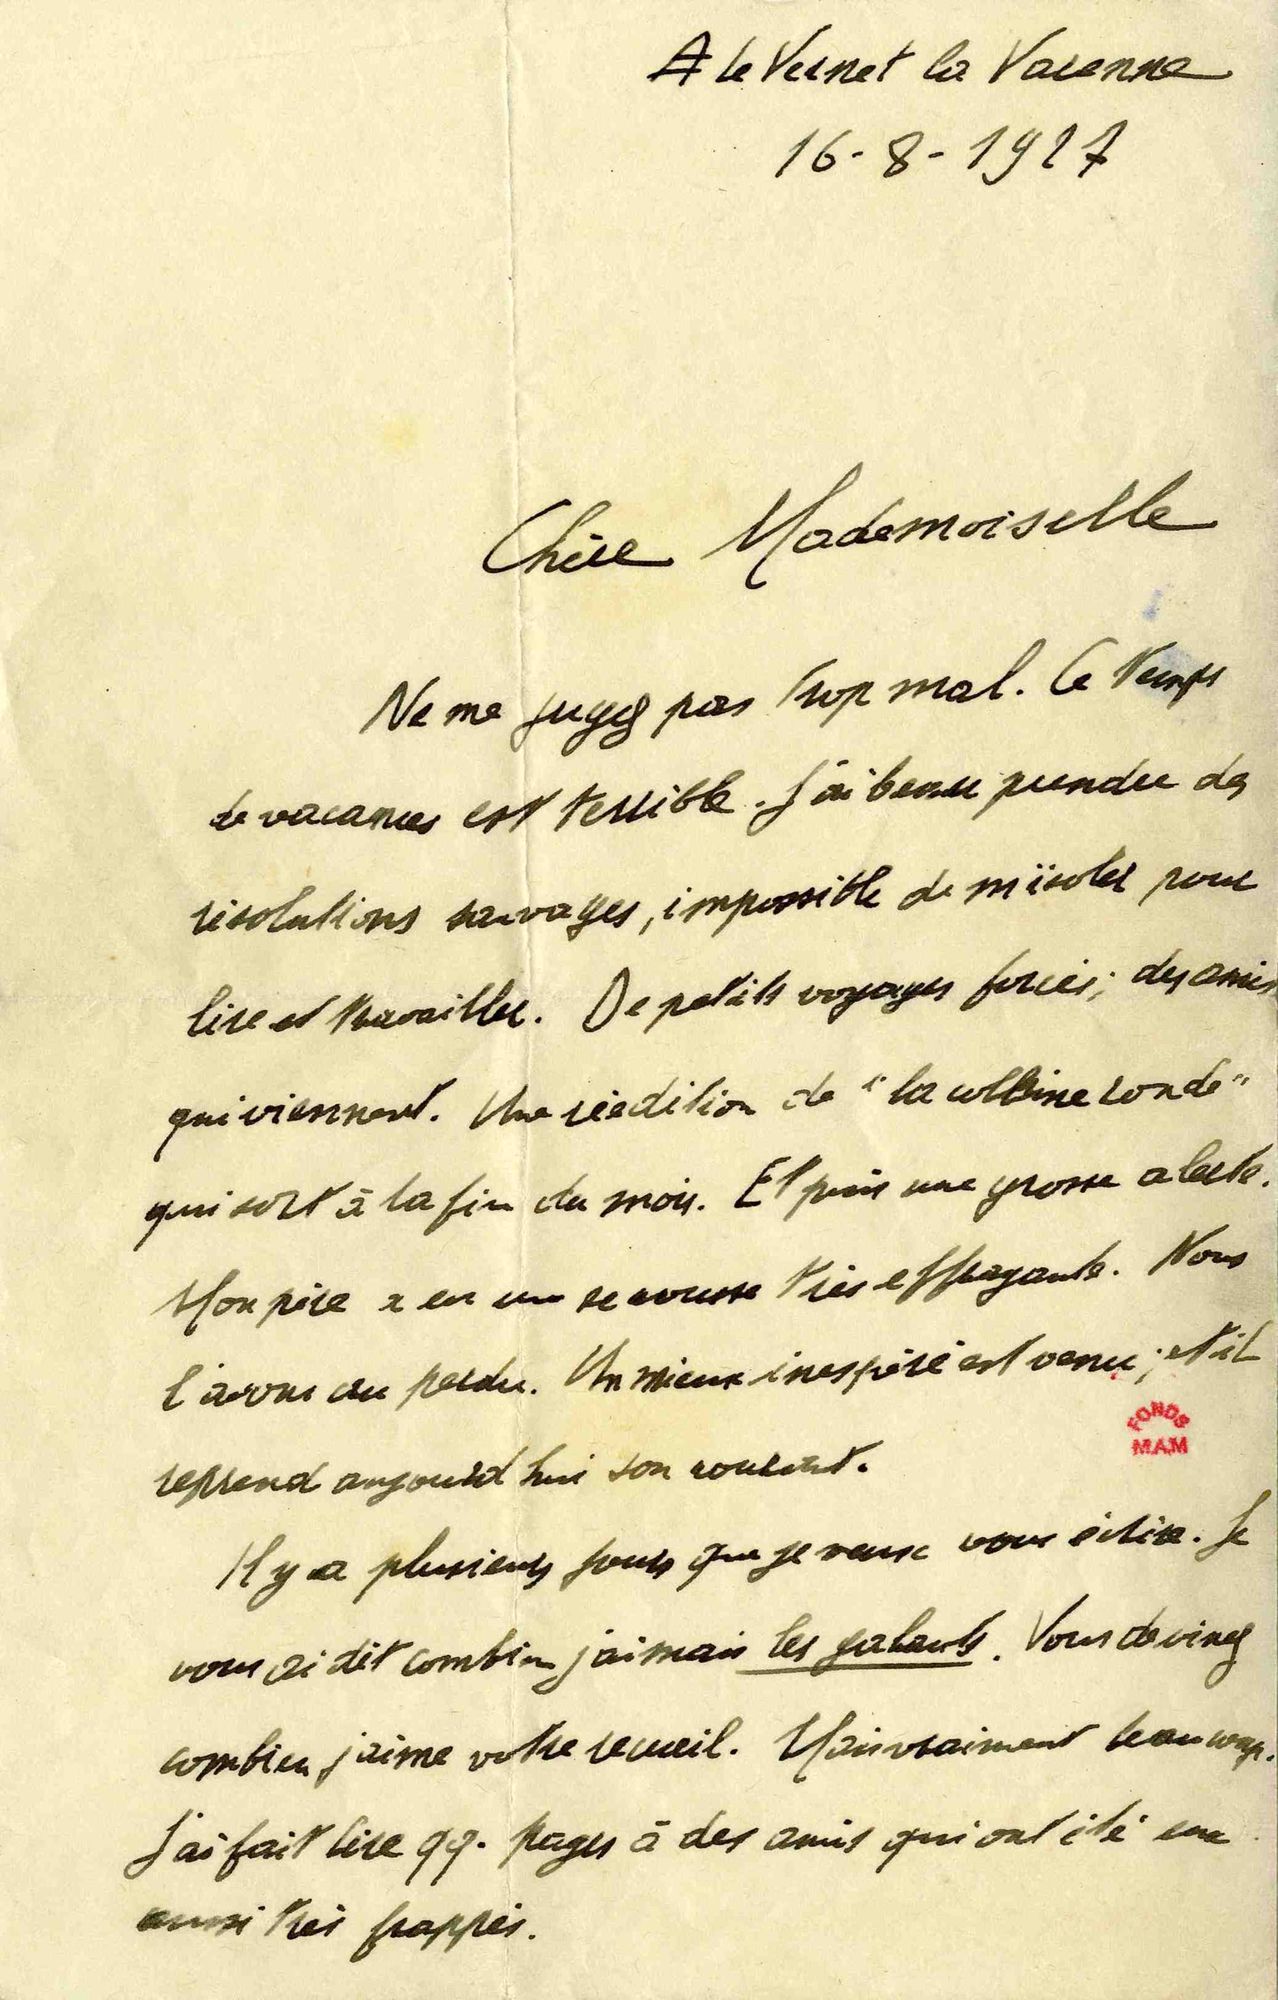 A le Vernet la Varenne
16-8-1927
Chère Mademoiselle
Ne me jugez pas trop mal. Ce temps
de vacances est terrible. J'ai beau prendre des
résolutions sauvages, impossible de m'isoler pour
lire et travailler. De petits voyages forcés; des amis
qui viennent. Une réédition de "la colline ronde"
qui sort à la fin du mois. Et puis une grosse alerte.
Mon père a eu une secousse très effrayante. Nous
l'avons cru perdu. Un mieux inespéré est venu; et il
reprend aujourd'hui son courant.
Il y a plusieurs jours que je veux vous écrire. Je
vous ai dit combien j'aimais les galants. Vous devinez
combien j'aime votre recueil. Mais vraiment beaucoup.
J'ai fait lire qq. pages à des amis qui ont été eux
aussi très frappés.
FONDS
M.A.M